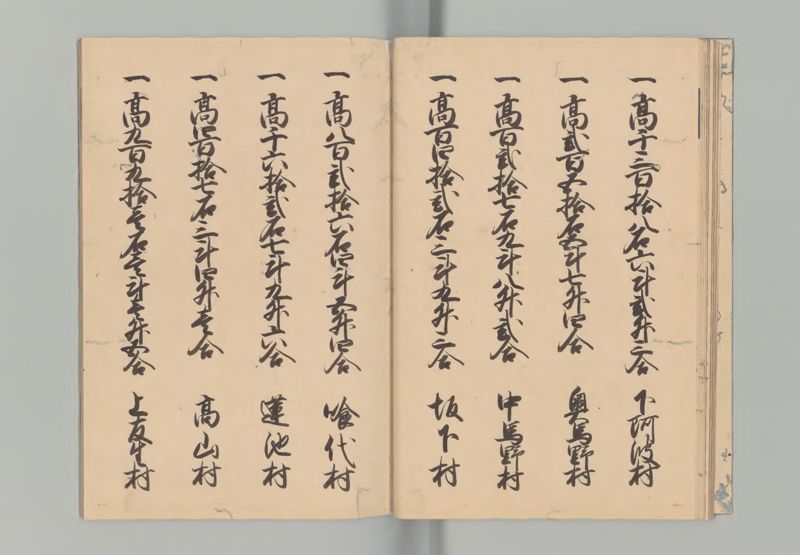 一高千三百拾八石六斗弐升三合 下阿波村
一高弐百五拾石五斗七升四合 奥馬野村
一高百弐拾七石九斗八升弐合 中馬野村
一高百四拾弐石三斗九升三合 坂下村
一高八百弐拾六石四斗五升四合 喰代村
一高千六拾弐石七斗九升六合 蓮池村
一高四百拾七石三斗四升壱合 高山村
一高九百九拾壱石壱斗壱升五合 上友生村